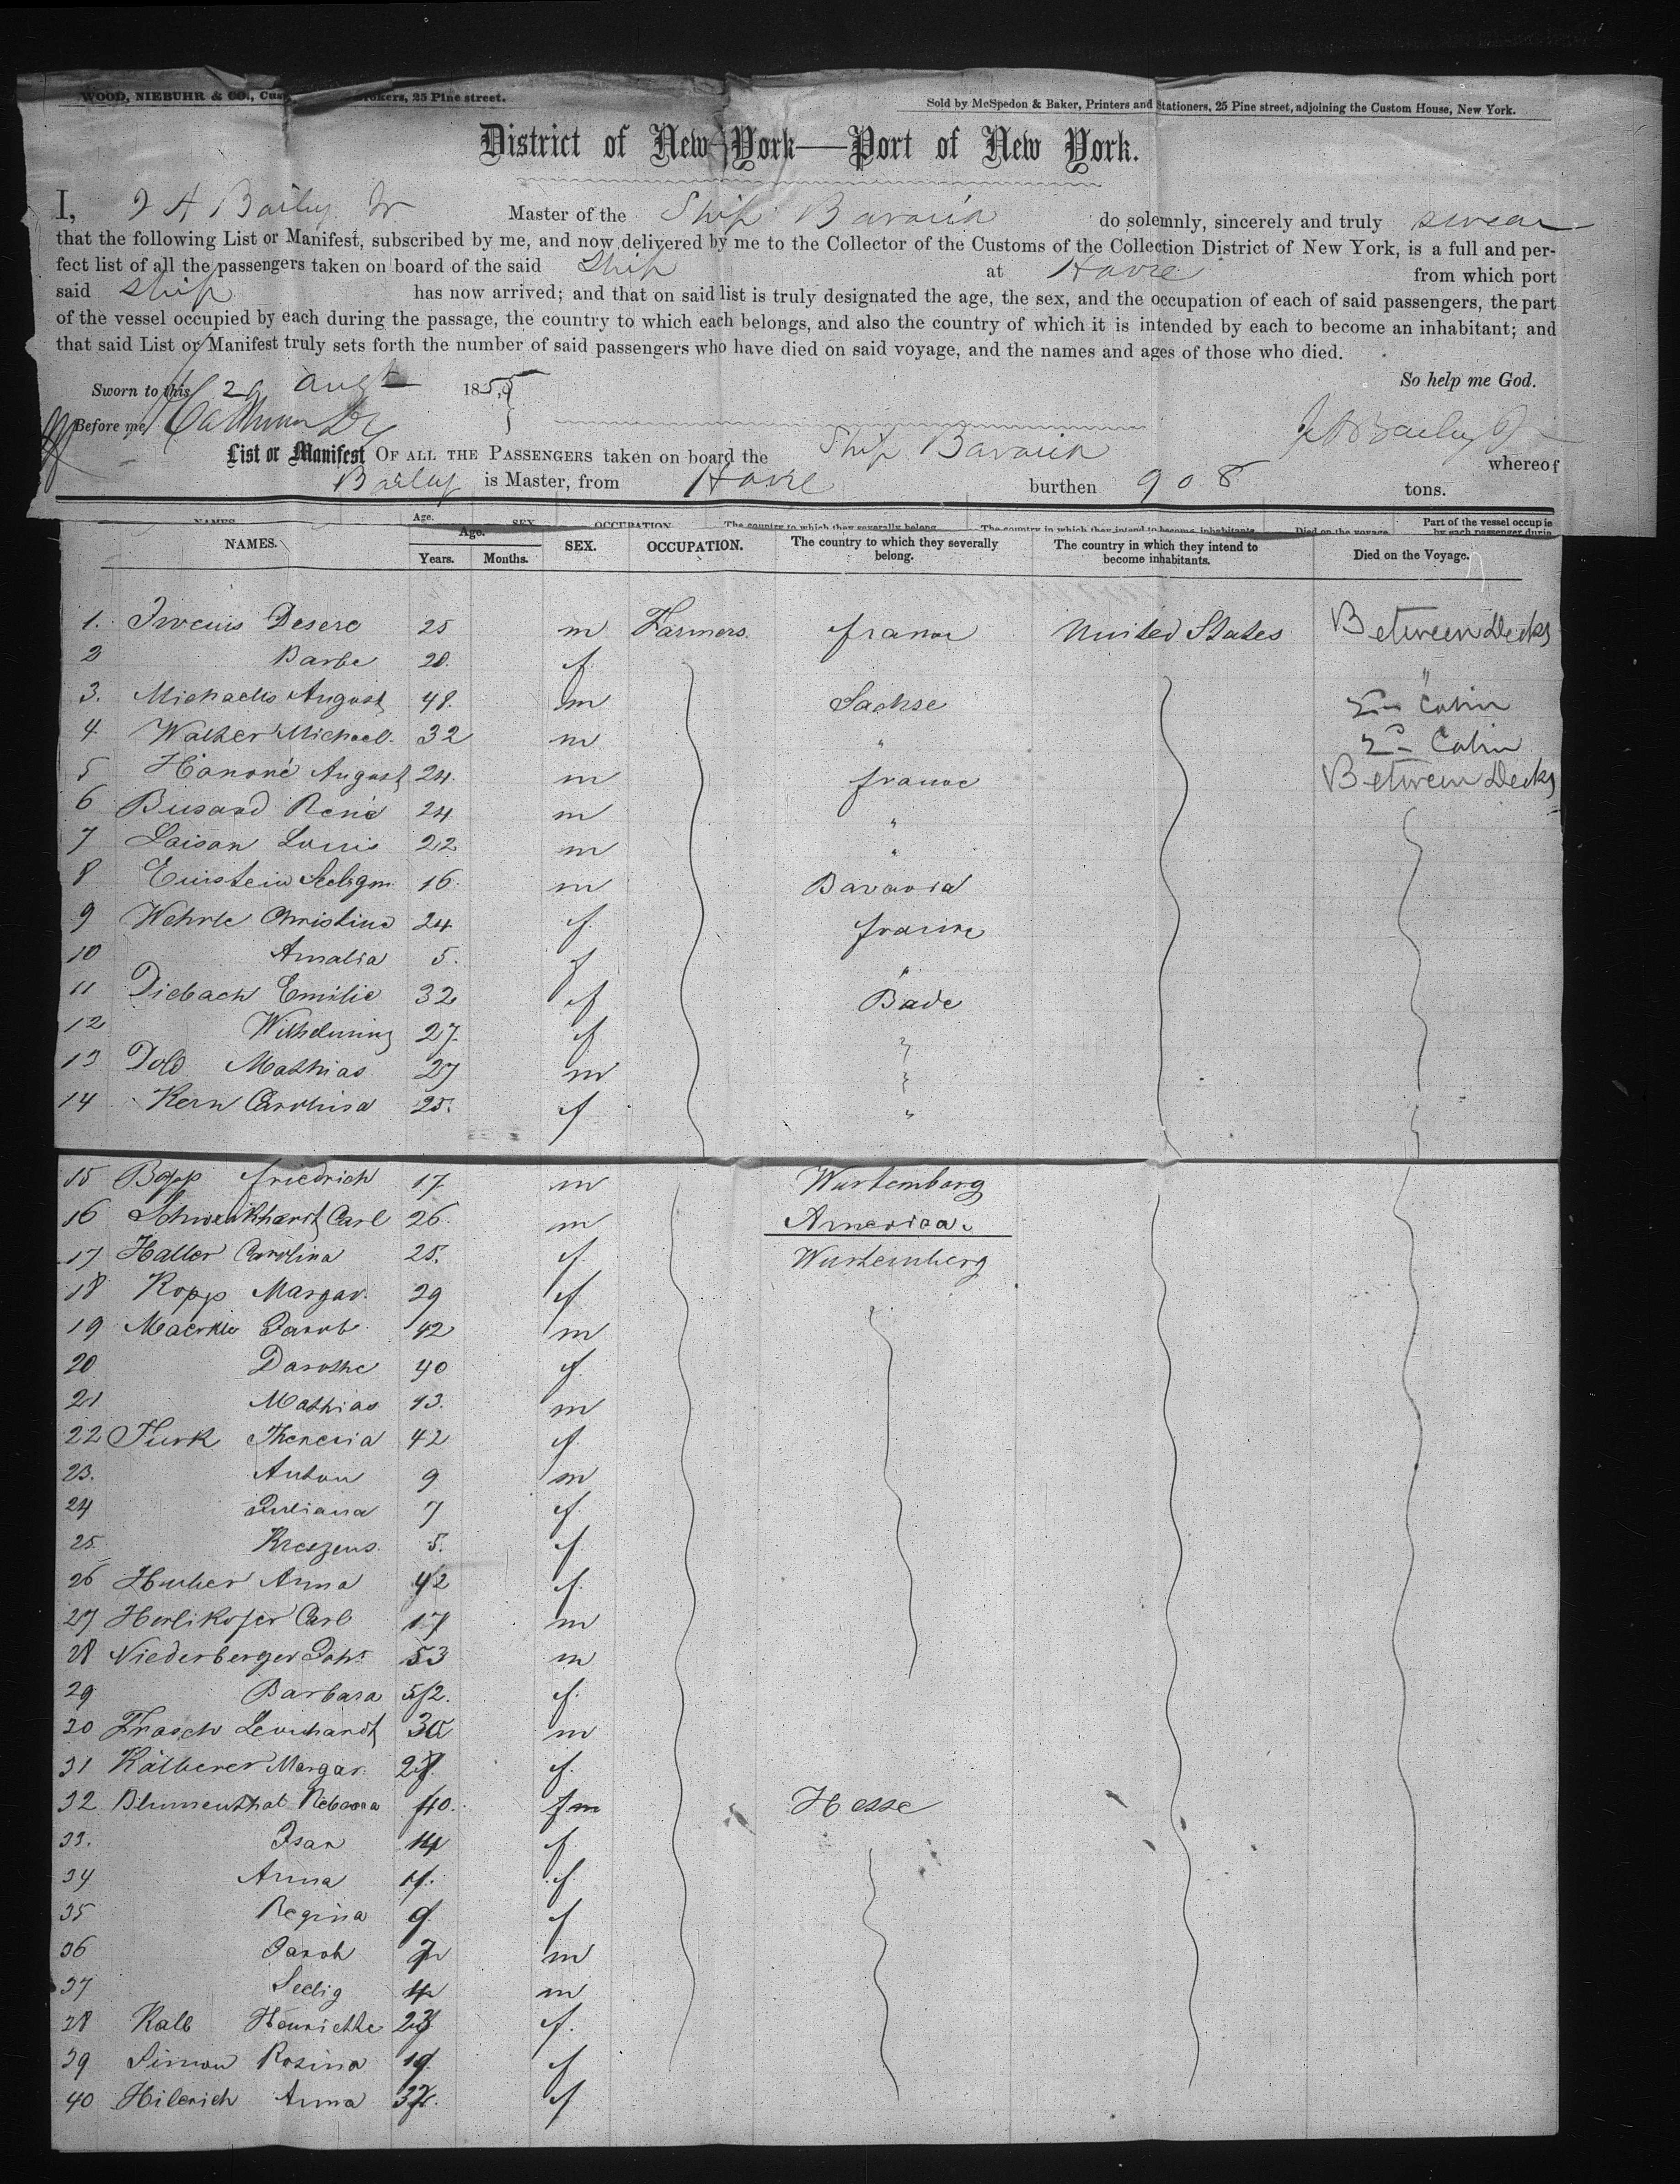 WOOD, NIEBUHR & CO., Brokers, 25 Pine street.
Sold by McSpedon & Baker, Printers and Stationers, 25 Pine street, adjoining the Custom House, New York.
District of New York—Port of New York.
I, J A Bailey Jr Master of the Ship Bavaria do solemnly, sincerely and truly swear
that the following List or Manifest, subscribed by me, and now delivered by me to the Collector of the Customs of the Collection District of New York, is a full and per-
fect list of all the passengers taken on board of the said Ship at Havre from which port
said Ship has now arrived; and that on said list is truly designated the age, the sex, and the occupation of each of said passengers, the part
of the vessel occupied by each during the passage, the country to which each belongs, and also the country of which it is intended by each to become an inhabitant; and
that said List or Manifest truly sets forth the number of said passengers who have died on said voyage, and the names and ages of those who died.
Sworn to this 29 Augt 1855 So help me God.
Before me
List or Manifest OF ALL THE PASSENGERS taken on board the Ship Bavaria whereof
Bailey is Master, from Havre burthen 908 tons.
NAMES. Age. SEX OCCUPATION The country to which they severally belong. The country in which they intend to become inhabitants. Died on the voyage. Part of the vessel occupie
by each passenger durin
NAMES. Age. Years. Months. SEX. OCCUPATION. The country to which they severally belong. The country in which they intend to become inhabitants. Died on the Voyage.
1. Desere 25 m Farmers. france United States Between Decks
2 Barbe 20. f. "
3. Michaelis August 48. m Sachse 2nd Cabin
4 Walker Michael. 32 m " 2d Cabin
5 Hanoné August 24. m france Between Decks
6 Busard René 24 m "
7 Laison Louis 22 m "
8 Einstein Seligm. 16. m Bavaria
9 Wehrle Christine 24 f. france
10 Amalia 5. f "
11 Diebach Emilie 32 f Bade
12 Wilhelmine 27. f "
13 Dold Mathias 27 m "
14 Kern Carolina 25. f "
15 Bopp friedrich 17 m Wurtemberg
16 Schwenkhardt Carl 26. m America.
17 Haller Carolina 25. f. Wurtemberg
18 Kopp Margar. 29 f
19 Maerkle Jacob 42 m
20 Darothe 40 f
21 Mathias 13. m
22 Turk Theresia 42 f.
23. Anton 9 m
24 Juliana 7 f.
25. Kreszens. 5. f
26 Huber Anna 42 f.
27 Herlikofer Carl 17 m
28 Niederberger Joh. 53 m
29 Barbara 52. f.
30 Frasch Leonhardt 30 m
31 Kälberer Margar. 27. f.
32 Blumenthal Rebecca 40. f
33. Isac 14 f.
34 Anna 11. f.
35 Regina 9 f
36 Jacob 7 m
37 Seelig 4 m
38 Kalb Henriette 23. f.
39 Simon Rosina 19. f
40 Hilerich Anna f